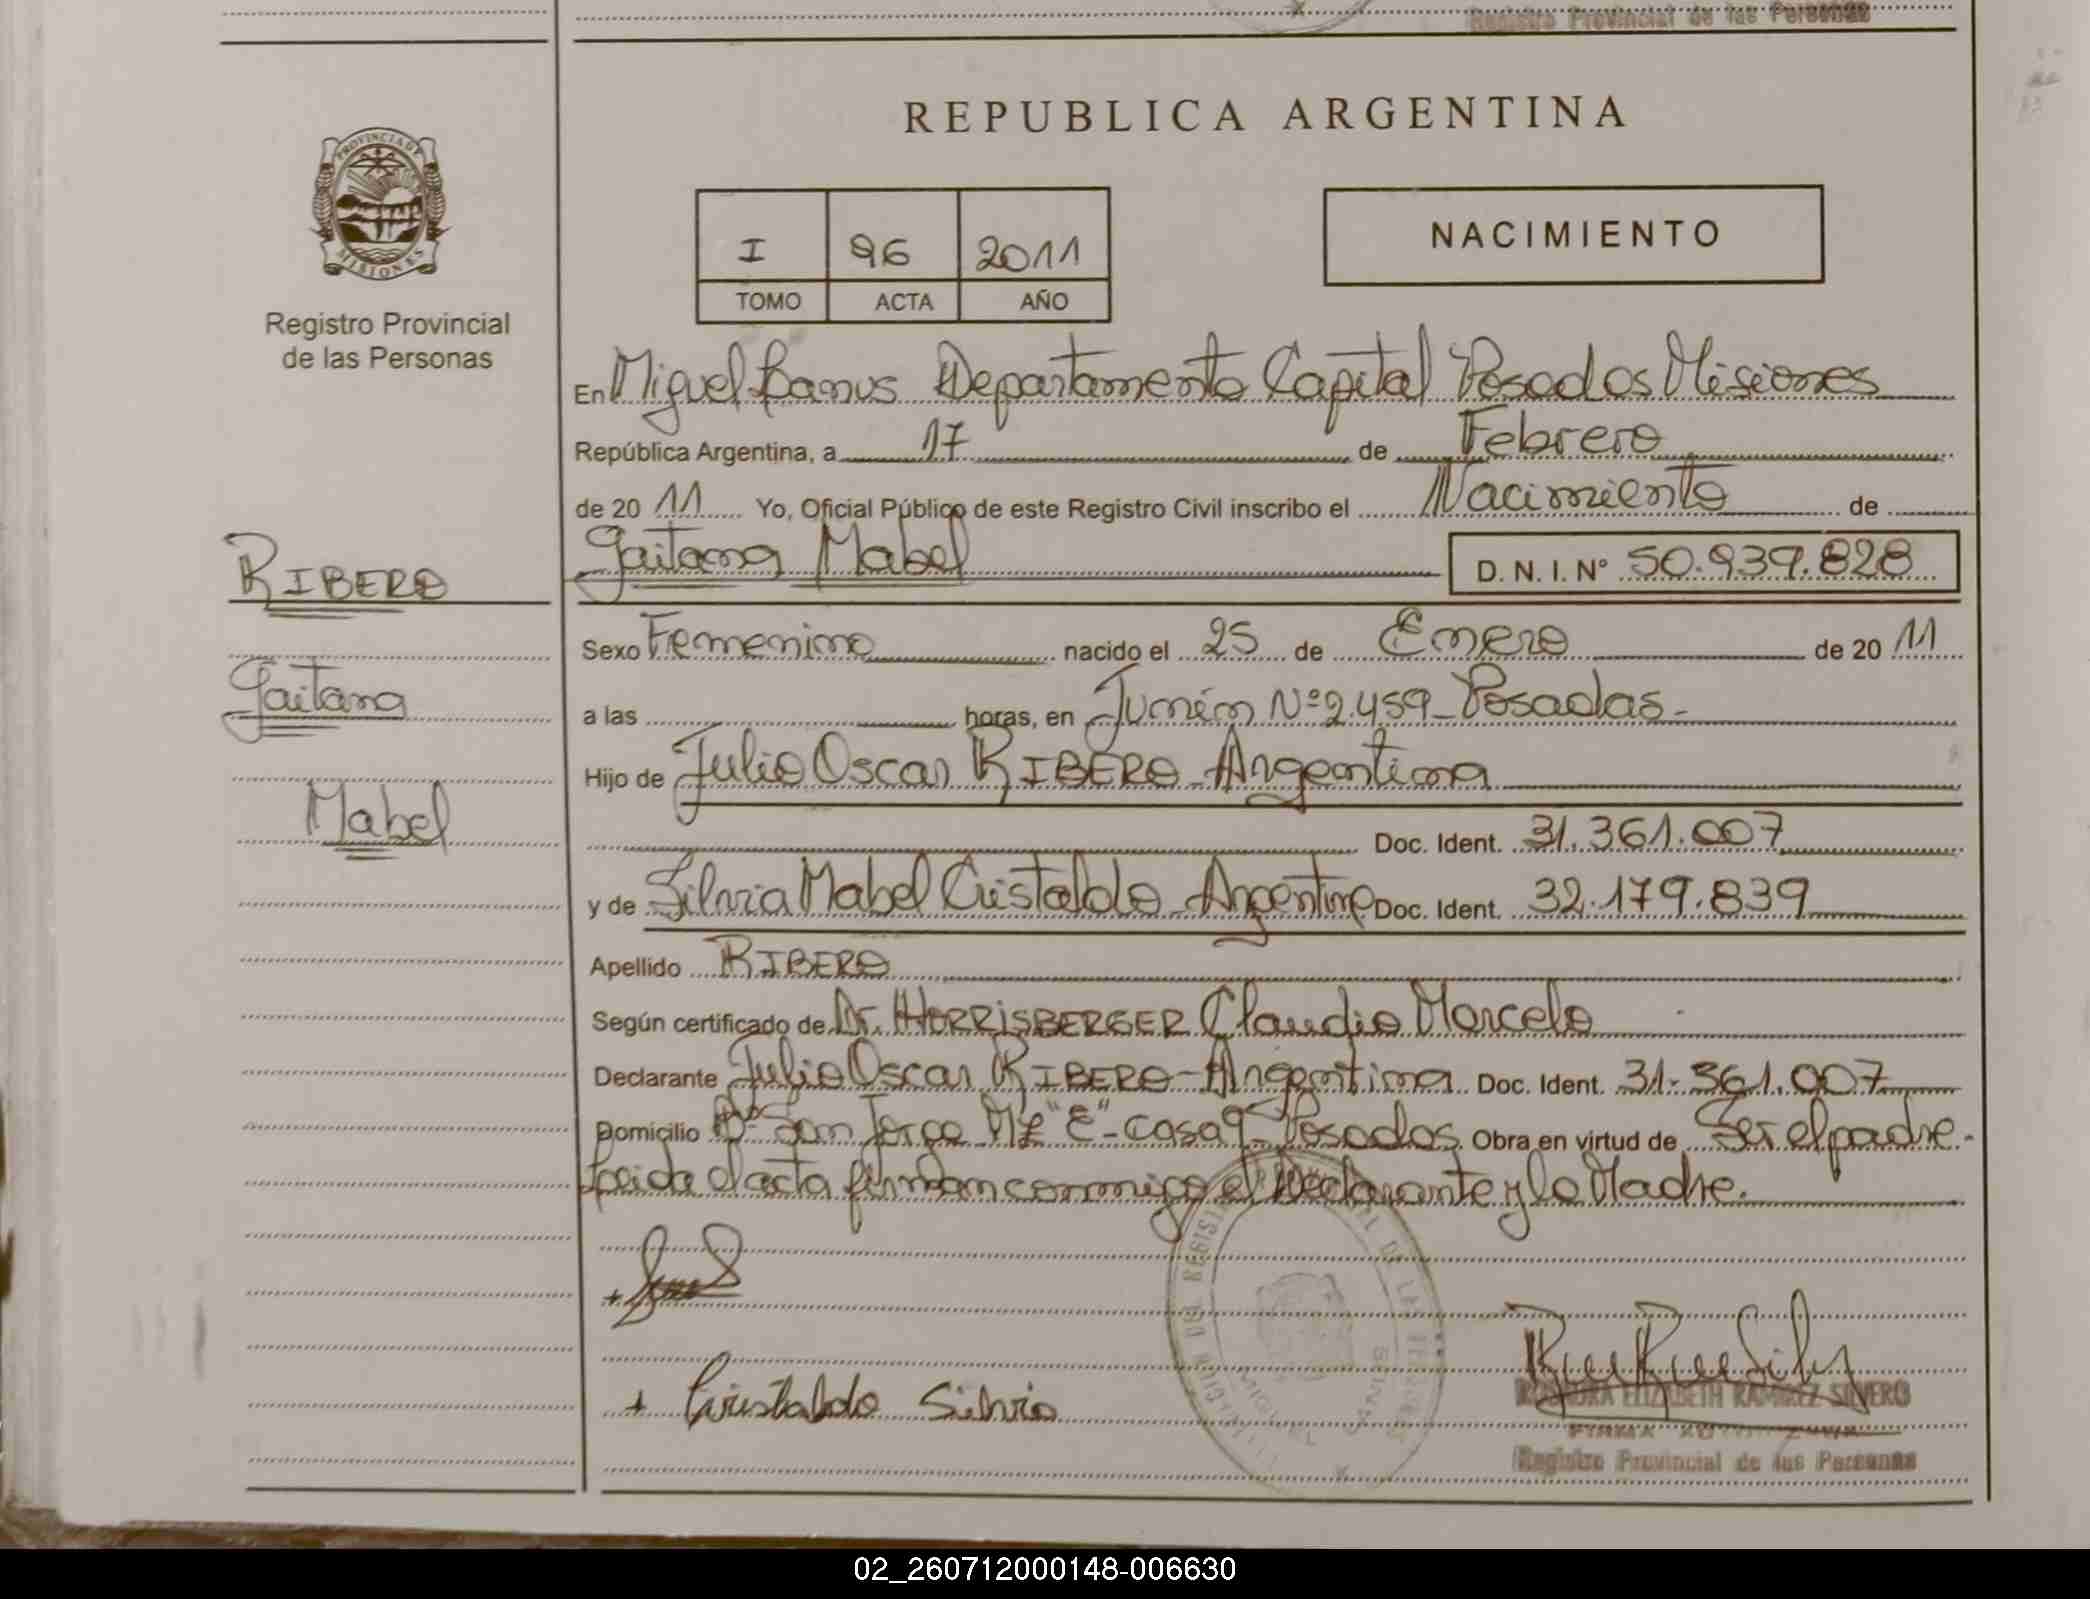 Registro Provincial de las Personas
REPUBLICA ARGENTINA
PROVINCIA DE
MISIONES
Registro Provincial
de las Personas
I 96 2011
TOMO ACTA AÑO
NACIMIENTO
En Miguel Lanus Departamento Capital Posadas Misiones
República Argentina, a 17 de Febrero
de 20 11 Yo, Oficial Público de este Registro Civil inscribo el Nacimiento de
Gaitana Mabel D. N. I. Nº 50.939.828
RIBERO
Gaitana
Mabel
Sexo Femenino nacido el 25 de Enero de 20 11
a las horas, en Junín Nº 2.459 - Posadas -
Hijo de Julio Oscar RIBERO - Argentina
Doc. Ident. 31.361.007
y de Silvia Mabel Cristaldo - Argentina Doc. Ident. 32.179.839
Apellido RIBERO
Según certificado de Dr. HORRISBERGER Claudio Marcelo
Declarante Julio Oscar RIBERO - Argentina Doc. Ident. 31.361.007
Domicilio Bº San Jorge Mz "E" - casa 9 - Posadas Obra en virtud de Ser el padre -
Leida el acta firman conmigo el Declarante y la Madre.
+ Cristaldo Silvia
ELIZABETH RAMIREZ SILVERO
Registro Provincial de las Personas
02_260712000148-006630